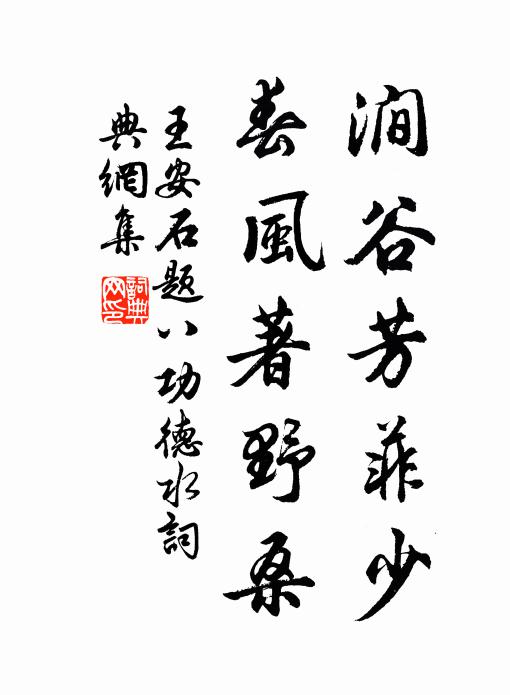 澗谷芳菲少
春風著野桑
王安石題八功德水詞
典網集
詞典
网印